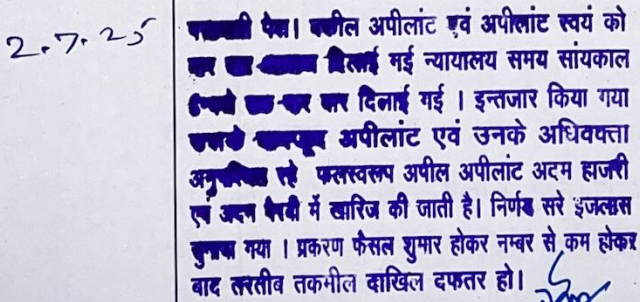 2.7.25
पत्रावली पेश। वकील अपीलांट एवं अपीलांट स्वयं को
बार दिलाई गई न्यायालय समय सांयकाल
बार दिलाई गई । इन्तजार किया गया
उसके बावजूद अपीलांट एवं उनके अधिवक्ता
अनुपस्थित रहे फलस्वरूप अपील अपीलांट अदम हाजरी
एवं अदम पैरवी में खारिज की जाती है। निर्णय सरे इजलास
सुनाया गया । प्रकरण फैसल शुमार होकर नम्बर से कम होकर
बाद तरतीब तकमील दाखिल दफतर हो।